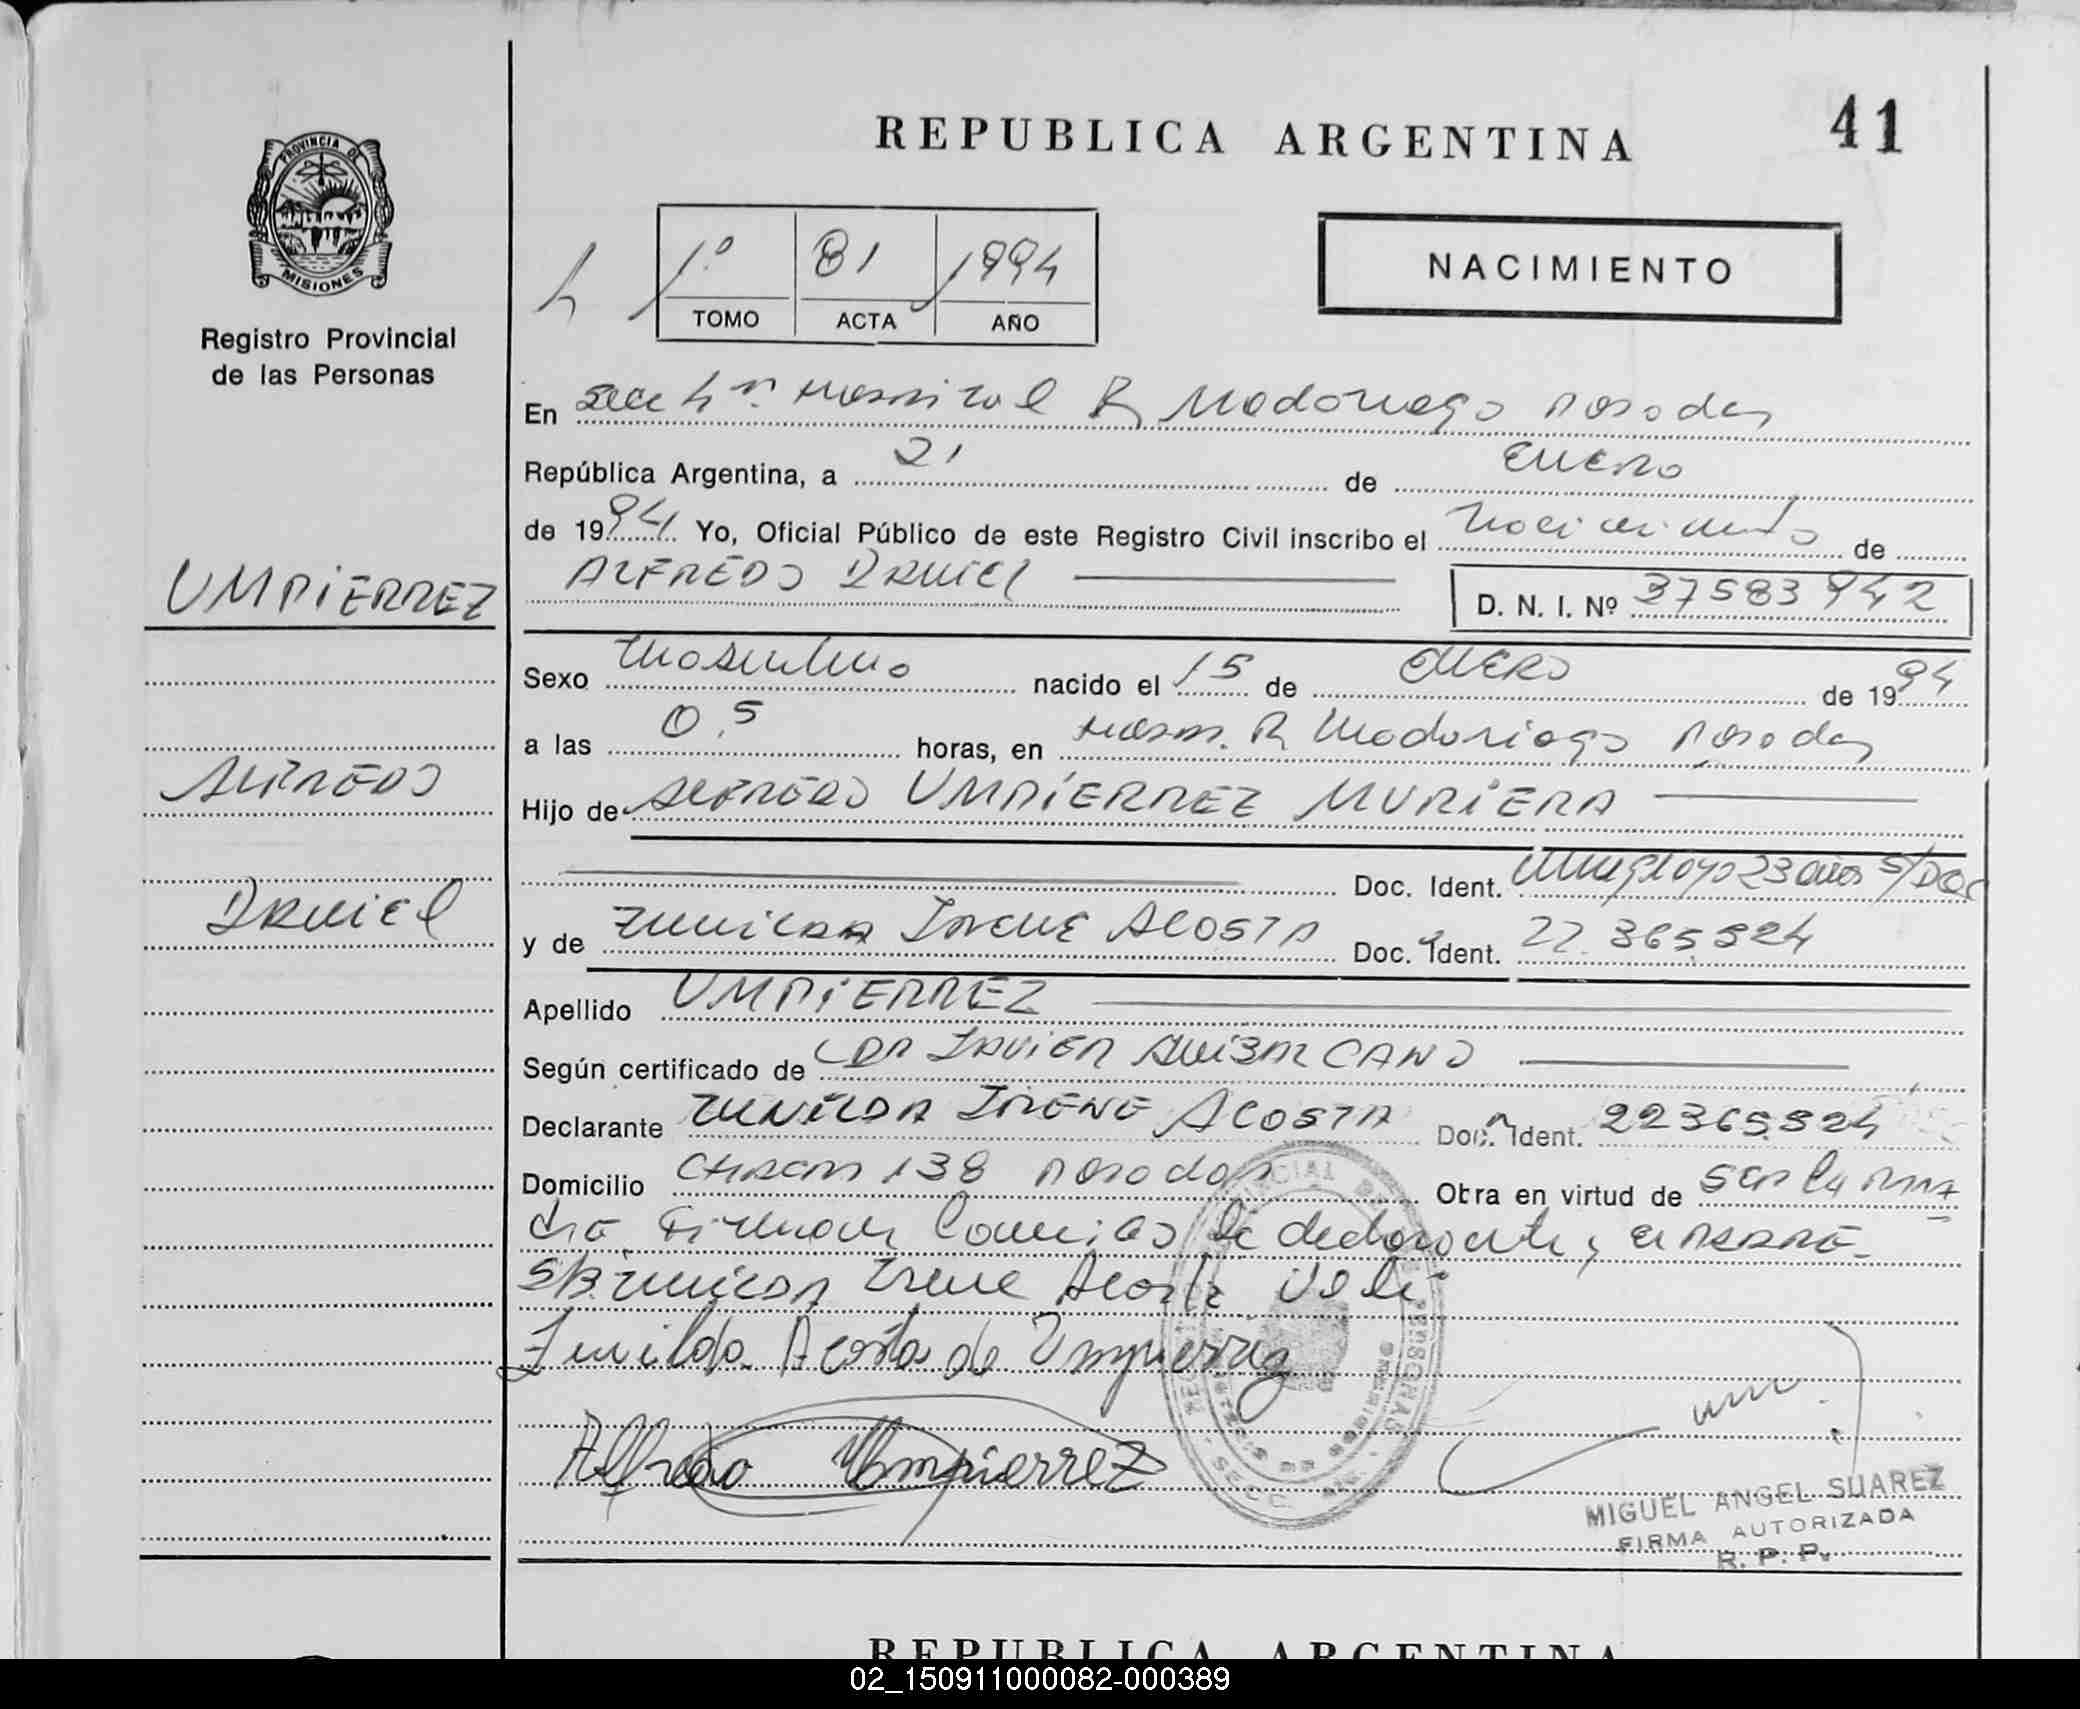 REPUBLICA ARGENTINA
41
PROVINCIA DE
MISIONES
Registro Provincial
de las Personas
1º 81 1994
TOMO ACTA AÑO
NACIMIENTO
En Secc 4ª Hospital R Madariaga Posadas
República Argentina, a 21 de Enero
de 1994 Yo, Oficial Público de este Registro Civil inscribo el nacimiento de
ALFREDO DANIEL D. N. I. Nº 37583942
UMPIERREZ
Sexo Masculino nacido el 15 de ENERO de 1994
a las 0,5 horas, en Hosp. R Madariaga Posadas
ALFREDO
Hijo de ALFREDO UMPIERREZ MURIERA
Doc. Ident. Uruguayo 23 años S/DOC
DANIEL
y de ZUNILDA IRENE ACOSTA Doc. Ident. 22.365.324
Apellido UMPIERREZ
Según certificado de DR JAVIER ANIBAL CANO
Declarante ZUNILDA IRENE ACOSTA Doc. Ident. 22365324
Domicilio 138 Posadas Obra en virtud de ser la
la declarante, el PADRE
ZUNILDA Irene Acosta Vale
Zunilda Acosta de Umpierrez
Alfredo Umpierrez
MIGUEL ANGEL SUAREZ
FIRMA AUTORIZADA
R. P. P.
REPUBLICA ARGENTINA
02_150911000082-000389